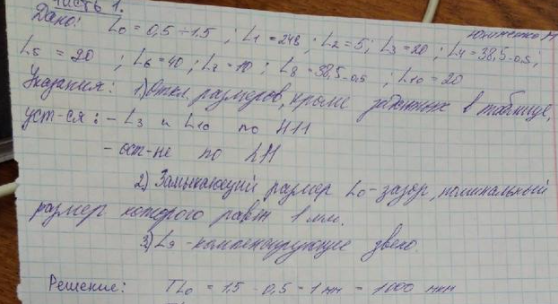 Часть 1.
Дано: L₀ = 0,5 ÷ 1.5 ; L₁ = 248 ; L₂ = 5 ; L₃ = 20 ; L₄ = 38,5₋₀,₅ ;
L₅ = 20 ; L₆ = 40 ; L₇ = 110 ; L₈ = 38,5₋₀,₅ ; L₁₀ = 20
Указания: 1) Откл. размеров, кроме заданных в таблице,
уст-ся: - L₃ и L₁₀ по H11
- ост-не по
2) Замыкающий размер L₀ - зазор, номинальный
размер которого равен 1 мм.
3) L₉ - компенсирующее звено.
Решение: TL₀ = 1,5 - 0,5 = 1 мм = 1000 мкм